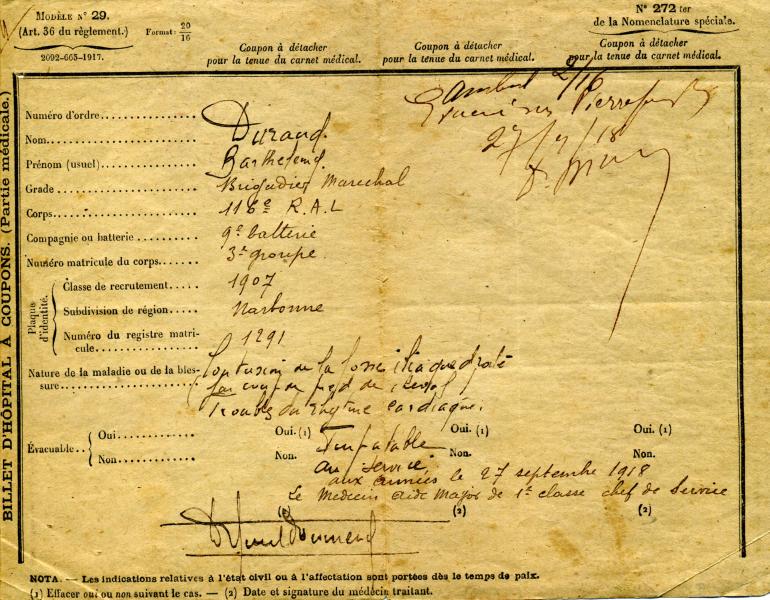 MODÈLE N° 29.
(Art. 36 du règlement.)
2092-665-1917.
Format: 20/16
Coupon à détacher
pour la tenue du carnet médical.
Coupon à détacher
pour la tenue du carnet médical.
N° 272 ter
de la Nomenclature spéciale.
Coupon à détacher
pour la tenue du carnet médical.
BILLET D'HÔPITAL À COUPONS. (Partie médicale.)
2/16
Pierrefonds
27/9/18
Numéro d'ordre
Nom Durand
Prénom (usuel) Barthelemy
Grade Brigadier Marechal
Corps 116e R.A.L
Compagnie ou batterie 9e batterie
Numéro matricule du corps 3e groupe
Plaque d'identité.
Classe de recrutement 1907
Subdivision de région Narbonne
Numéro du registre matricule 1291
Nature de la maladie ou de la blessure
Contusion de la fosse iliaque droite
par coup de pied de cheval
Troubles du rythme cardiaque.
Évacuable
Oui
Non
Oui. (1)
Non.
Oui. (1)
Non.
Oui. (1)
Non.
Imputable
au service
aux armées le 27 septembre 1918
Le Medecin aide major de 1e classe chef de Service
(2)
(2)
(2)
NOTA. — Les indications relatives à l'état civil ou à l'affectation sont portées dès le temps de paix.
(1) Effacer oui ou non suivant le cas. — (2) Date et signature du médecin traitant.